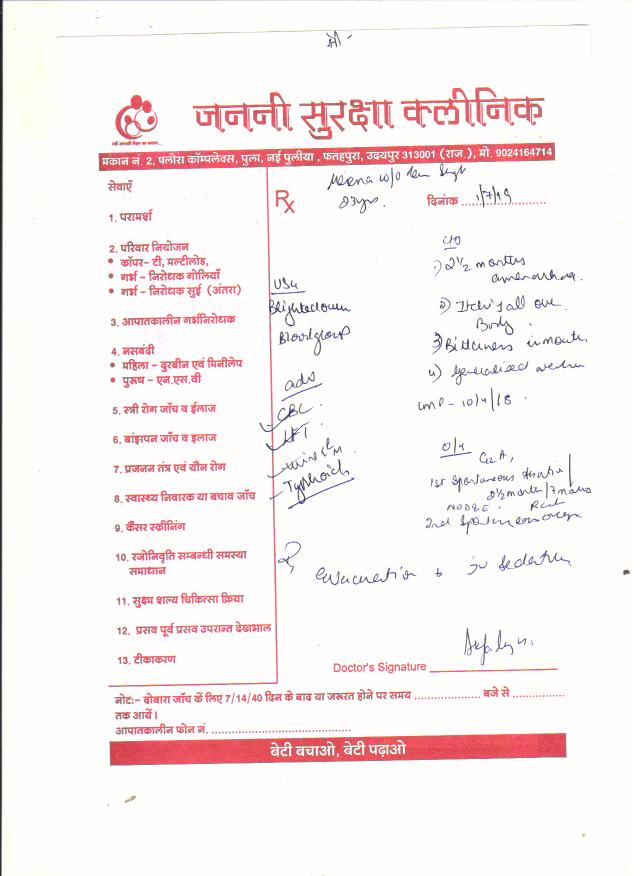 श्री -
जननी सुरक्षा क्लीनिक
मकान नं. 2, फ्लोरा कॉम्पलेक्स, पुला, नई पुलीया, फतहपुरा, उदयपुर 313001 (राज.), मो. 9024164714
सेवाएँ
1. परामर्श
2. परिवार नियोजन
• कॉपर- टी, मल्टीलोड,
• गर्भ - निरोधक गोलियाँ
• गर्भ - निरोधक सुई (अंतरा)
3. आपातकालीन गर्भनिरोधक
4. नसबंदी
• महिला - दुरबीन एवं मिनीलेप
• पुरूष - एन.एस.वी
5. स्त्री रोग जाँच व ईलाज
6. बांझपन जाँच व इलाज
7. प्रजनन तंत्र एवं यौन रोग
8. स्वास्थ्य निवारक या बचाव जाँच
9. कैंसर स्क्रीनिंग
10. रजोनिवृति सम्बन्धी समस्या
समाधान
11. सुक्ष्म शल्य चिकित्सा क्रिया
12. प्रसव पूर्व प्रसव उपरान्त देखभाल
13. टीकाकरण
Rx
Meena w/o
23yrs.
दिनांक 1/7/19
USG
Blighted ovum
Blood group
adv
CBC.
LFT
Urine
Typhoid
c/o
1) 2½ months
amenorrhea.
2) Itching all over
Body.
3) Bitterness in mouth
4) Generalised
LMP - 10/4/18.
O/H
G2A1
1st Spontaneous Abortion
2½ months / 7 months
NOD&E. Back
2nd Spontaneous
Evacuation iv sedation
Doctor's Signature
नोट:- दोबारा जाँच के लिए 7/14/40 दिन के बाद या जरूरत होने पर समय .................. बजे से ..............
तक आयें।
आपातकालीन फोन नं. ........................................
बेटी बचाओ, बेटी पढ़ाओ